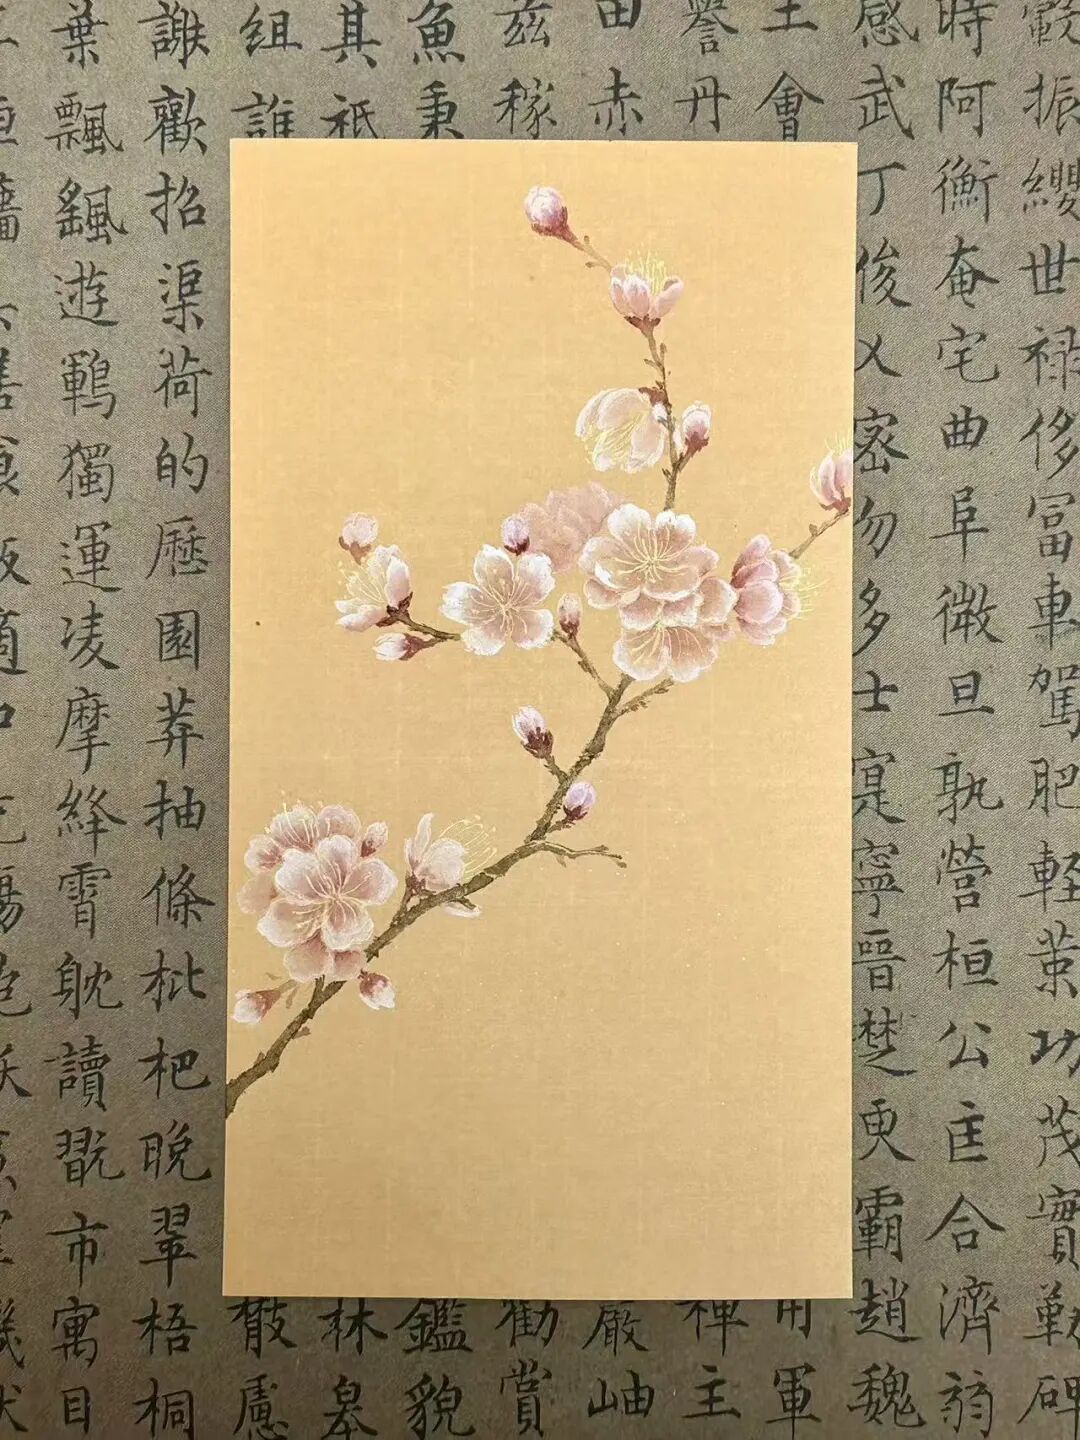 振纓世禄侈冨車駕肥軽茦功茂實勒碑
時阿衡奄宅曲阜微旦孰營桓公匡合濟弱
感武丁俊乂密勿多士寔寧晉楚更霸趙魏
土會
用軍
譽丹
禪主
田赤
嚴岫
茲稼
勸賞
魚秉
鑑貌
其祗
林皋
組誰
散慮
謝歡招渠荷的歷園莽抽條枇杷晚翠梧桐
葉飄飖遊鵾獨運凌摩絳霄耽讀翫市寓目